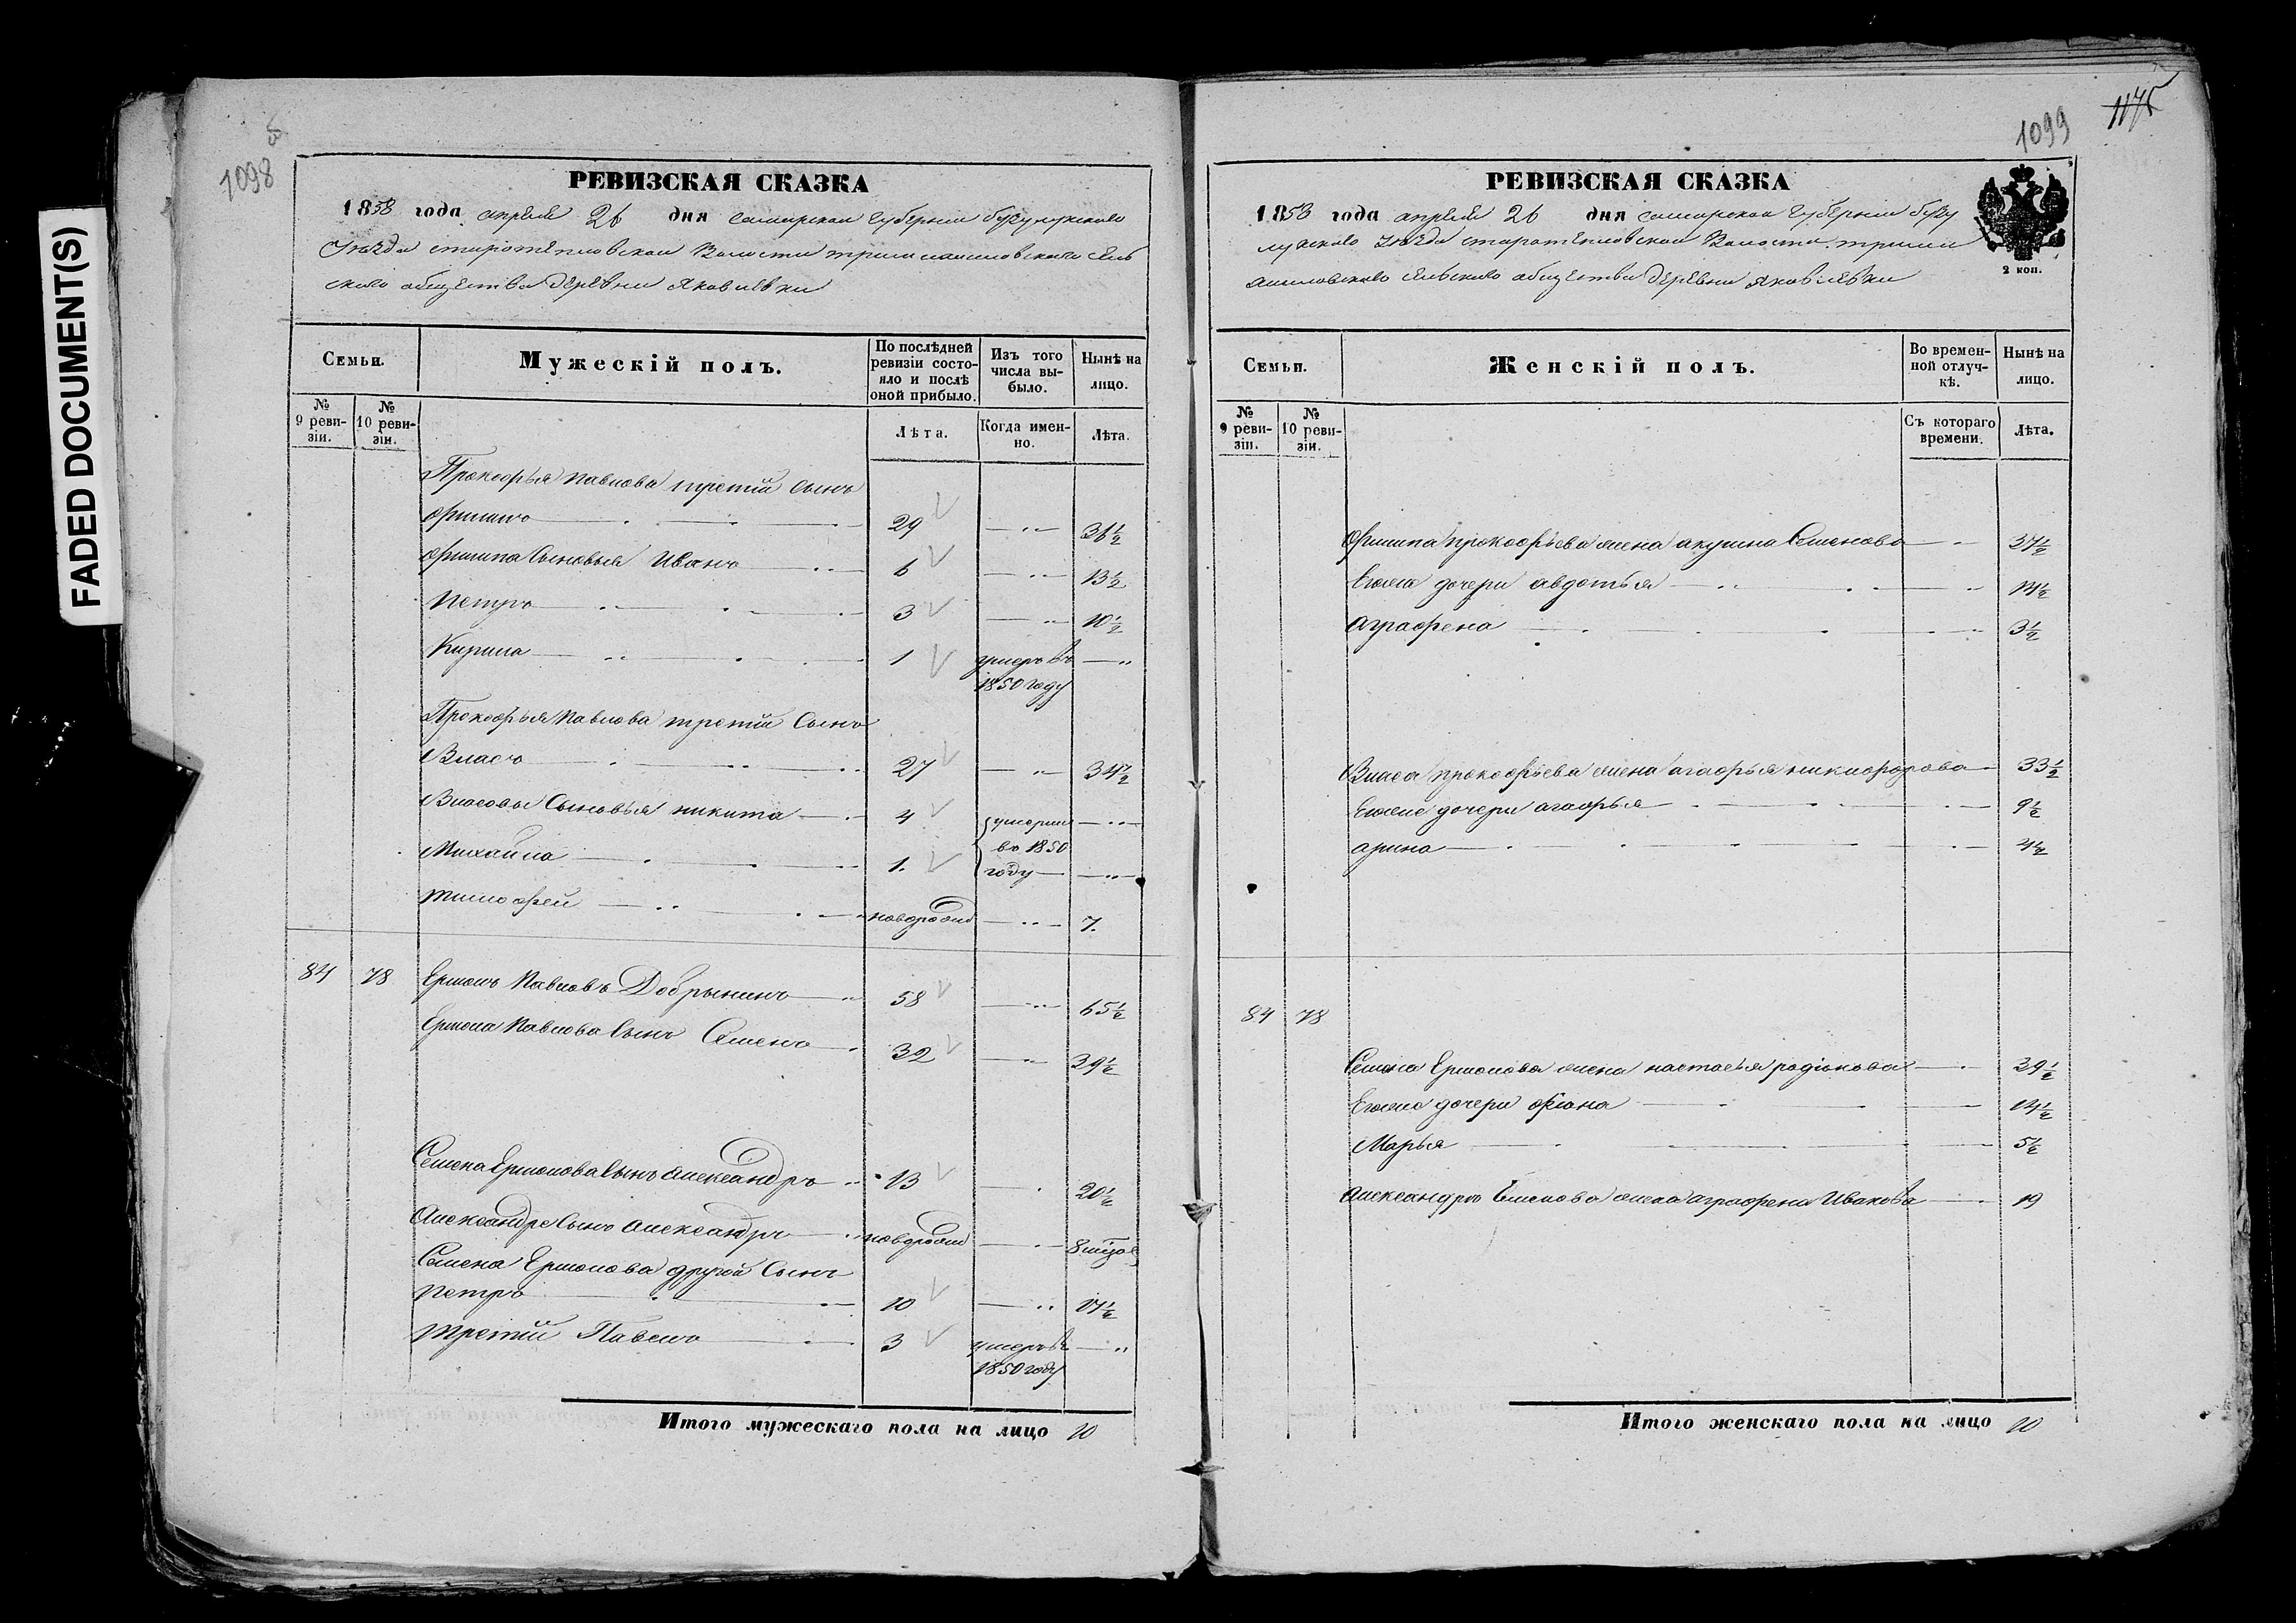 FADED DOCUMENT(S)
1098
РЕВИЗСКАЯ СКАЗКА
1858 года апреля 26 дня самарской губернии бузулукского
Уезда старотепловской Волости
ского общества Деревни Яковлевки
Семьи.
Мужескій полъ.
По послѣдней ревизіи состояло и послѣ оной прибыло.
Изъ того числа выбыло.
Нынѣ на лицо.
№ 9 ревизіи.
№ 10 ревизіи.
Лѣта.
Когда именно.
Лѣта.
Прокофья Павлова третій Сынъ
Филипъ 29 36½
Филипа Сыновья Иванъ 6 13½
Петръ 3 10½
Кирила 1 умеръ въ
1850 году
Прокофья Павлова третій Сынъ
Власъ 27 34½
Власовы Сыновья никита 4 умерли
въ 1850
Михайла 1. году
тимофей новорожд 7.
84 78 Ермолъ Павловъ Добрынинъ 58 65½
Ермола Павлова Сынъ Семенъ 32 39½
Семена Ермолова Сынъ Александръ 13 20½
Александра Сынъ Александръ новорожд
Семена Ермолова другой Сынъ
Петръ 10 17½
третій Павелъ 3 умеръ въ
1850 году
Итого мужескаго пола на лицо 10
1099
1175
РЕВИЗСКАЯ СКАЗКА
1858 года апреля 26 дня самарской губернии бузу
лукского Уезда старотепловской Волости
сельского общества Деревни Яковлевки
2 коп.
Семьи.
Женскій полъ.
Во временной отлучкѣ.
Нынѣ на лицо.
№ 9 ревизіи.
№ 10 ревизіи.
Съ котораго времени.
Лѣта.
Филипа прокофьева жена акулина Семенова 37½
Егоже дочери авдотья 14½
аграфена 3½
Власа прокофьева жена агафья никифорова 33½
Егоже дочери агафья 9½
арина 4½
84 78
Семена Ермолова жена настасья родіонова 39½
Егоже дочери 14½
Марья 5½
Александра Семенова жена аграфена Иванова 19
Итого женскаго пола на лицо 10